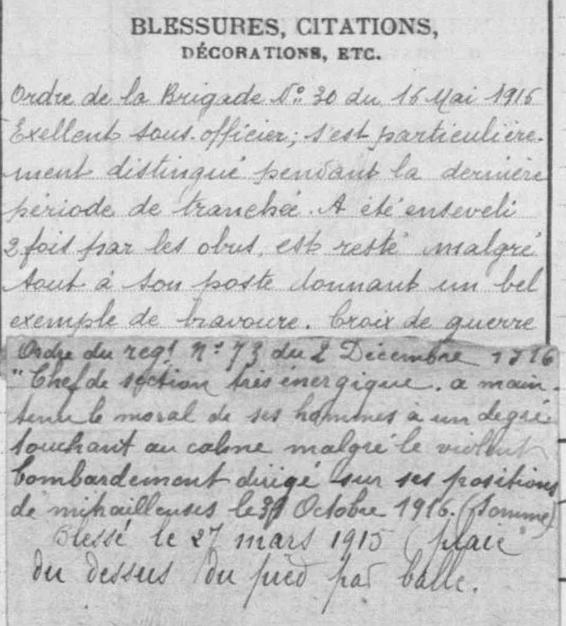 BLESSURES, CITATIONS,
DÉCORATIONS, ETC.
Ordre de la Brigade N° 30 du 16 Mai 1916
Exellent sous-officier; s'est particulière-
ment distingué pendant la dernière
période de tranchée. A été enseveli
2 fois par les obus, est resté malgré
tout à son poste donnant un bel
exemple de bravoure. Croix de guerre
Ordre du regt N° 73 du 2 Décembre 1916
"Chef de section très énergique. a main-
tenu le moral de ses hommes à un degré
touchant au calme malgré le violent
bombardement dirigé sur ses positions
de mitrailleuses le Octobre 1916. (Somme)
Blessé le 27 mars 1915 (plaie
du dessus du pied par balle.